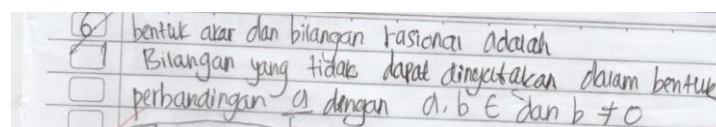 6 bentuk akar dan bilangan rasional adalah
Bilangan yang tidak dapat dinyatakan dalam bentuk
perbandingan a dengan a, b ∈ dan b ≠ 0